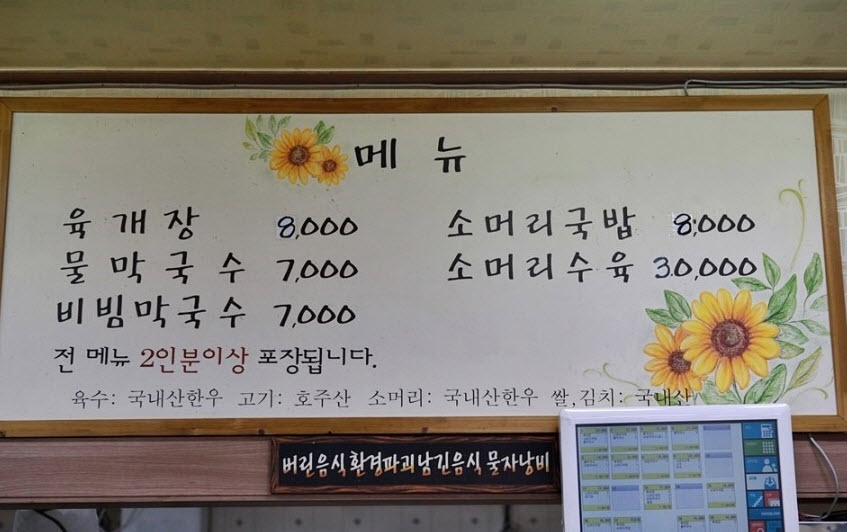 메뉴
육개장 8,000
물막국수 7,000
비빔막국수 7,000
소머리국밥 8,000
소머리수육 30,000
전 메뉴 2인분이상 포장됩니다.
육수: 국내산한우 고기: 호주산 소머리: 국내산한우 쌀,김치: 국내산
버린음식 환경파괴 남긴음식 물자낭비